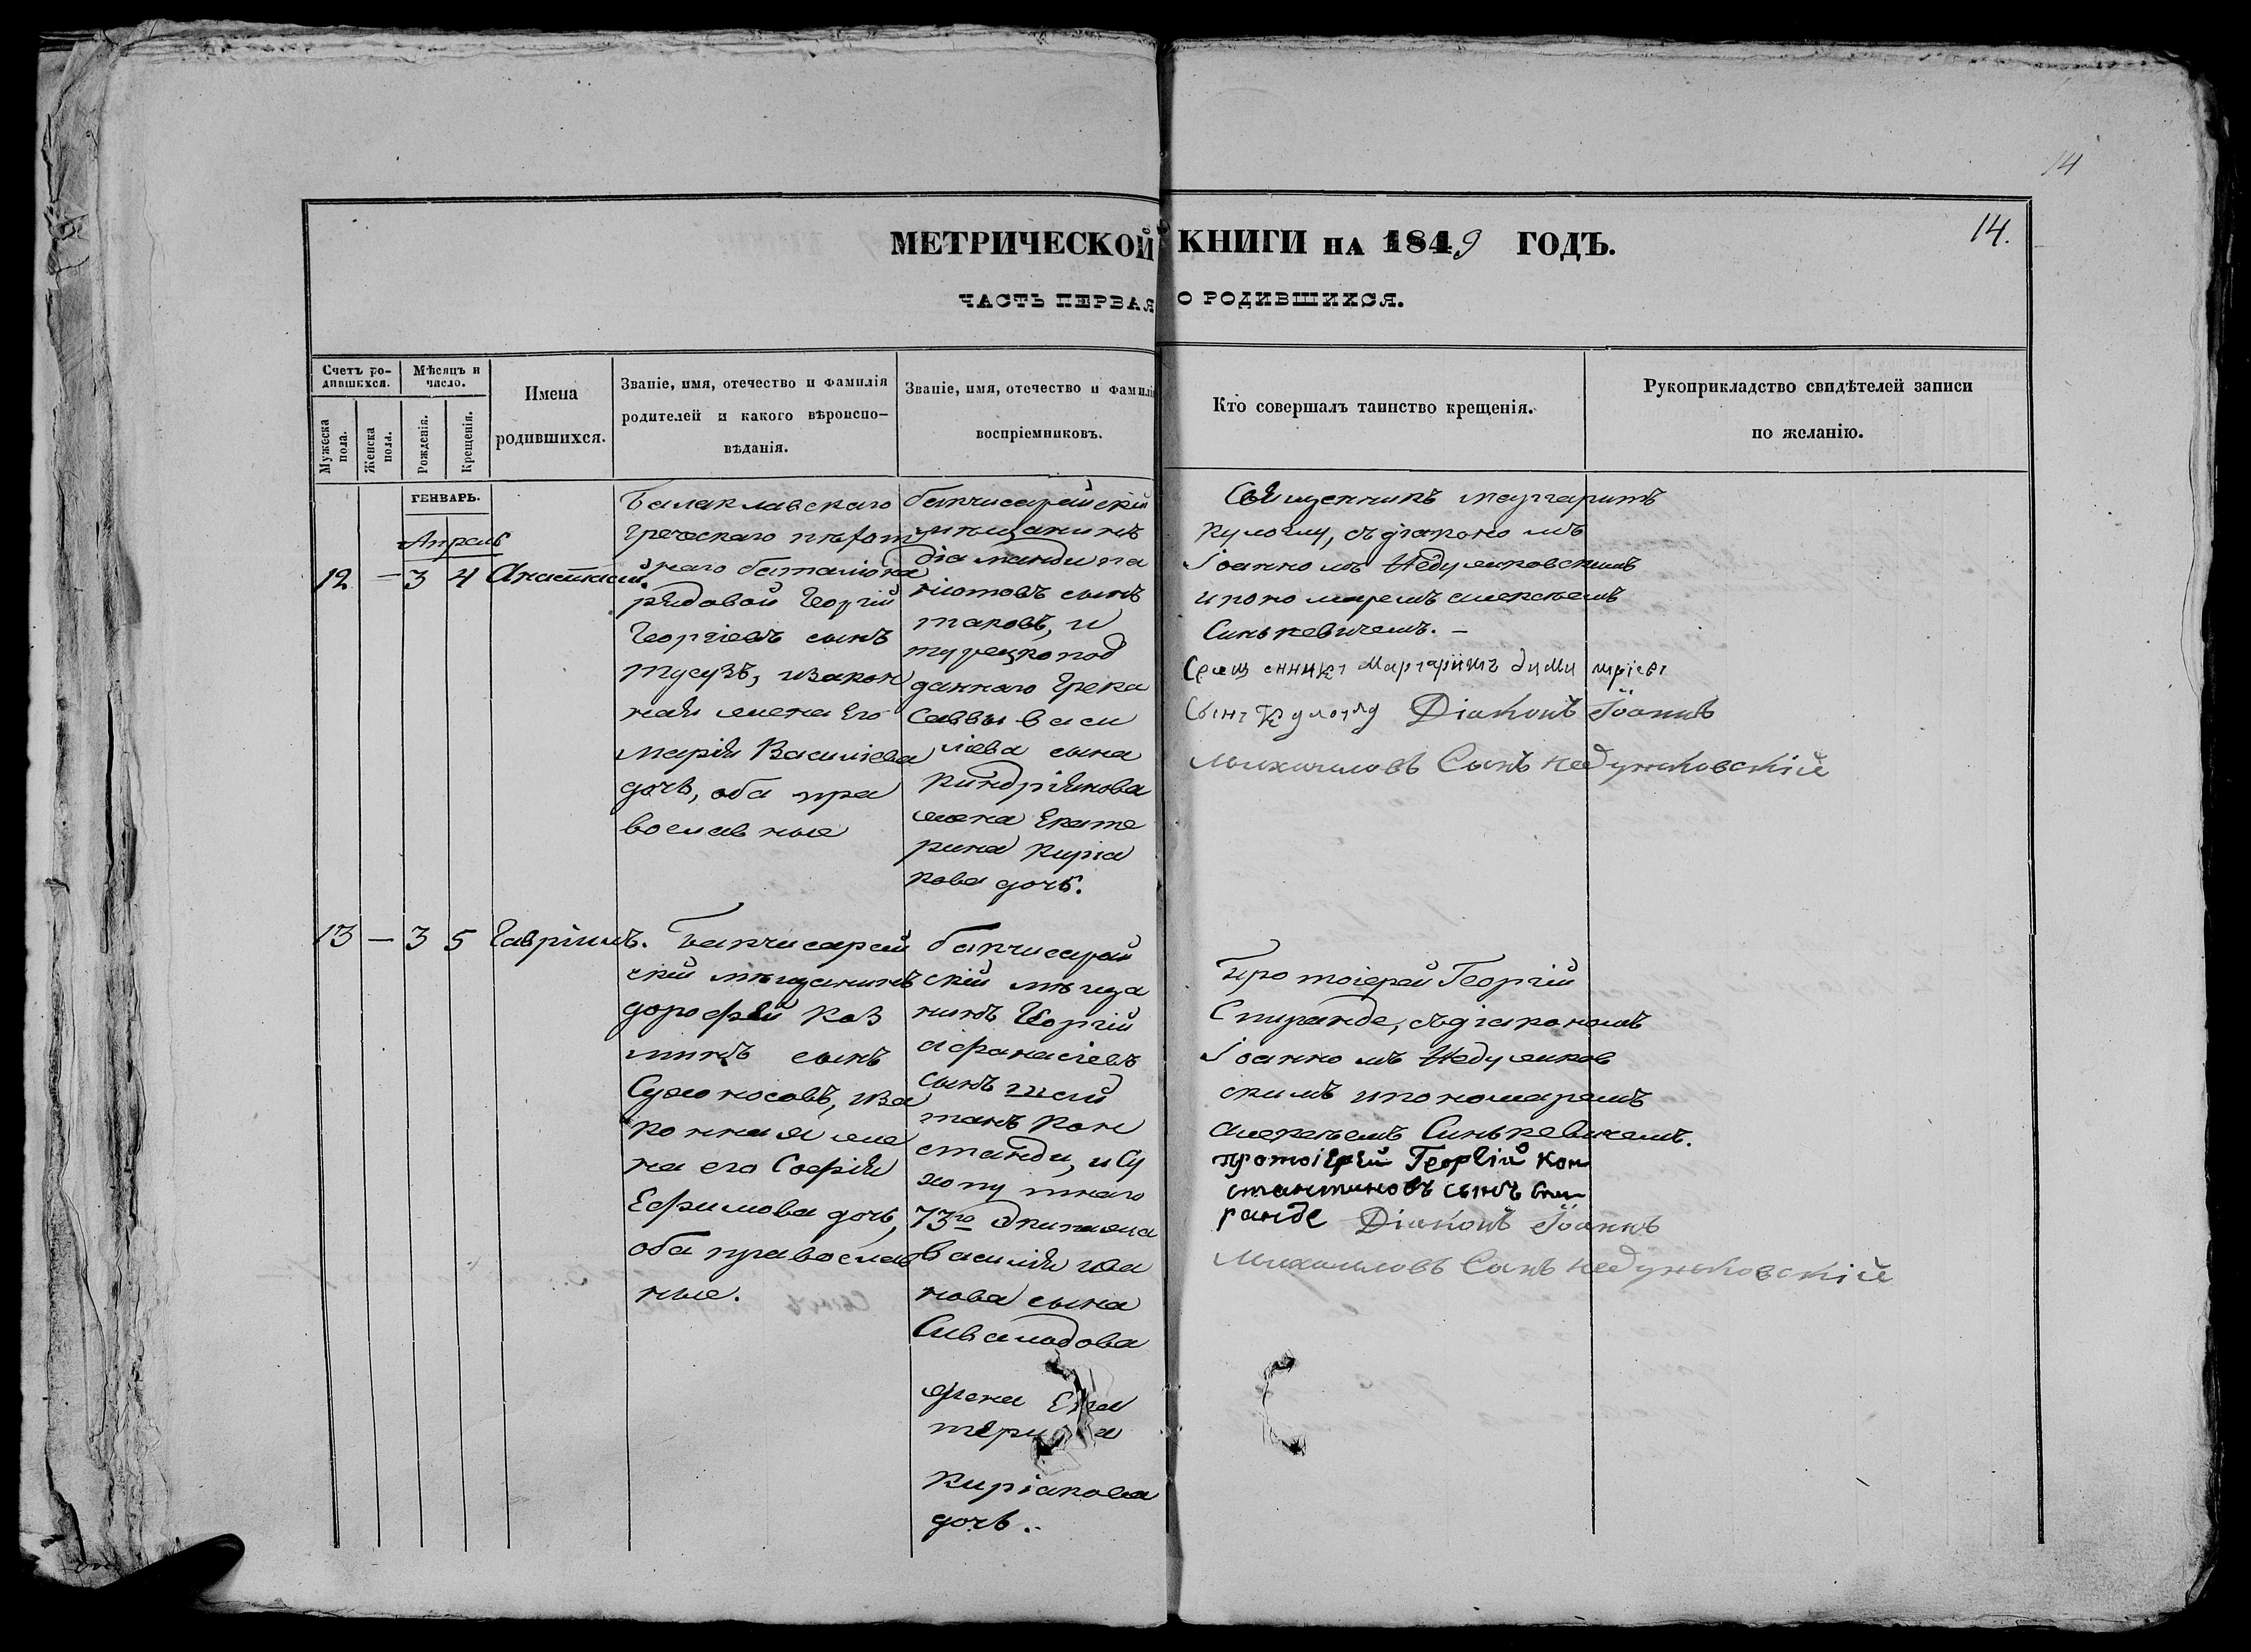 14
14.
МЕТРИЧЕСКОЙ КНИГИ НА 1849 ГОДЪ.
ЧАСТЬ ПЕРВАЯ О РОДИВШИХСЯ.
Счетъ ро-
дившихся.
Мужеска
пола.
Женска
пола.
Мѣсяцъ и
число.
Рожденія.
Крещенія.
Имена
родившихся.
Званіе, имя, отечество и фамилія
родителей и какого вѣроиспо-
вѣданія.
Званіе, имя, отечество и фамилі
воспріемниковъ.
Кто совершалъ таинство крещенія.
Рукоприкладство свидѣтелей записи
по желанію.
ГЕНВАРЬ.
Апрель
12 — 3 4
Балаклавскаго
Греческаго пѣхот
наго баталіона
рядовой Георгій
Георгіевъ сынъ
закон
ная жена Его
Марія Василіева
дочь, оба пра
вославные
бахчисарайскій
мѣщанинъ
сынъ
таковъ, и
турецкопод
даннаго Грека
Саввы Васи
ліева сына
Киндріянова
жена Екате
рина Киріа
кова дочь.
Священникъ Маргаритъ
съ діакономъ
Іоанномъ Недзунковскимъ
и пономаремъ Алексѣемъ
Синькевичемъ. —
Священникъ Маргаритъ Димитріевъ
Сынъ Діаконъ Іоаннъ
Михаиловъ Сынъ
13 — 3 5 Гавріилъ.
Бахчисарай
скій мѣщанинъ
дорофей Коз
минъ сынъ
Сухоносовъ, и за
конная же
на его Софія
Ефимова дочь,
оба православ
ные.
бахчисарай
скій мѣща
нинъ Георгій
афанасіевъ
сынъ
станди, и Су
хопутнаго
73го Экипажа
Василія Ива
нова сына
жена Ека
терина
Киріакова
дочь.
Протоіерей Георгій
Спиранде, съ діакономъ
Іоанномъ
скимъ и пономаремъ
Алексѣемъ Синькевичемъ.
Протоіерей Георгій Кон
стантиновъ сынъ Спи
ранде Діаконъ Іоаннъ
Михаиловъ Сынъ